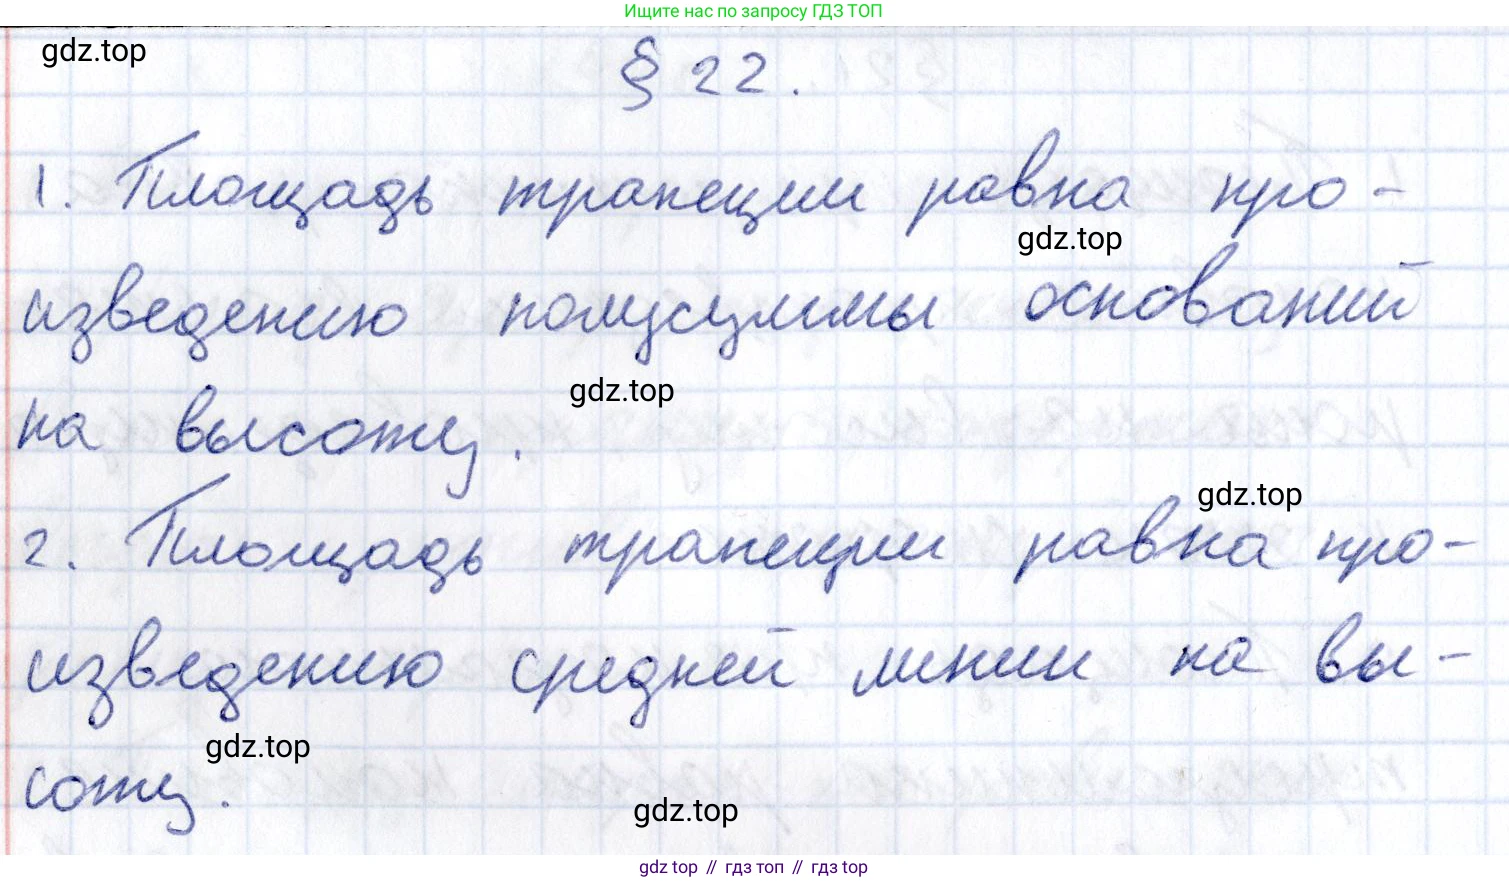 Ищите нас по запросу ГДЗ ТОП
gdz.top
§ 22.
1. Площадь трапеции равна про-
gdz.top
изведению полусуммы оснований
gdz.top
на высоту.
gdz.top
2. Площадь трапеции равна про-
изведению средней линии на вы-
gdz.top
соту.
gdz.top
gdz top // гдз топ // gdz top